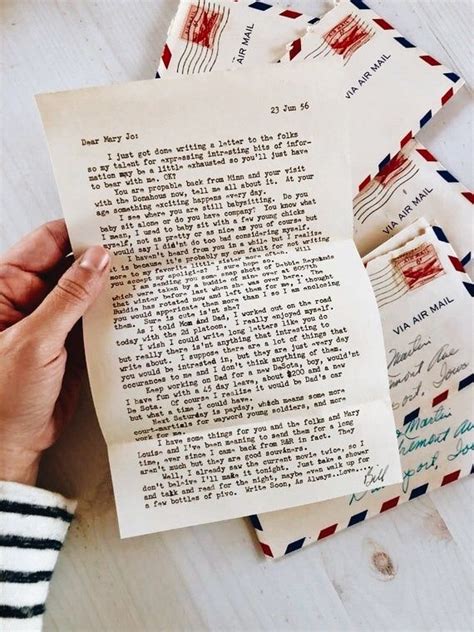 23 Jun 56
Dear Mary Jo:
I just got done writing a letter to the folks
so my talent for expressing intresting bits of infor-
mation may be a little exhausted so you'll just have
to bear with me. OK?
You are propable back from Minn and your visit
with the Donahous now, tell me all about it. At your
age something exciting happens every day.
I see where you are still babysitting. Do you
baby sit alone or do you have company? You know what
I mean, I used to baby sit with a few young chicks
myself, not as pretty or as nice as you of course but
would say I did'nt do too bad considering myself.
I haven't heard from you in a while but I realize
it is because it's probably my own fault for not writing
more to my favorite sister more often. Will
you accept my apoligies? I sure hope so.
I am sending you some
which were taken by a buddie of mine over at 8057th
that winter before last when she was over here. The
Buddie has rotated now and left them for me. I thought
you would appericate them more than I so I am enclosing
them. Sure is cute is'nt she!
As I told Mom and Dad, I worked out on the road
today with the 2d platoon. I really enjoyed myself
I wish I could write long letters like you do
but really there is'nt that interesting of things to
write about. I suppose there are a lot of things that
you would be intrested in but they are just every day
occurances to me and I don't think anything of them.
Keep working on Dad for a new DeSota, boy, would'nt
I have fun with a 45 day leave, about $200 and a new
De Sota. Of course I realise it would be Dad's car
but what a time I could have.
Next Saturday is payday, which means some more
court-martials for wayword young soldiers, and more
work for me.
I have some things for you and the folks and Mary
Louise and I've been meaning to send them for quite some
time, ever since I came back from R&R in fact. They
aren't much but they are good souvners.
Well, I already saw the current movie twice, so I
don't believe I'll make it tonight. Just take a shower
and talk and read for the night, maybe even walk up for
a few bottles of pivo. Write Soon, As Always..Love...
Bill
VIA AIR MAIL
VIA AIR MAIL
VIA AIR MAIL
VIA AIR MAIL
Martin
port, Iowa
Martin